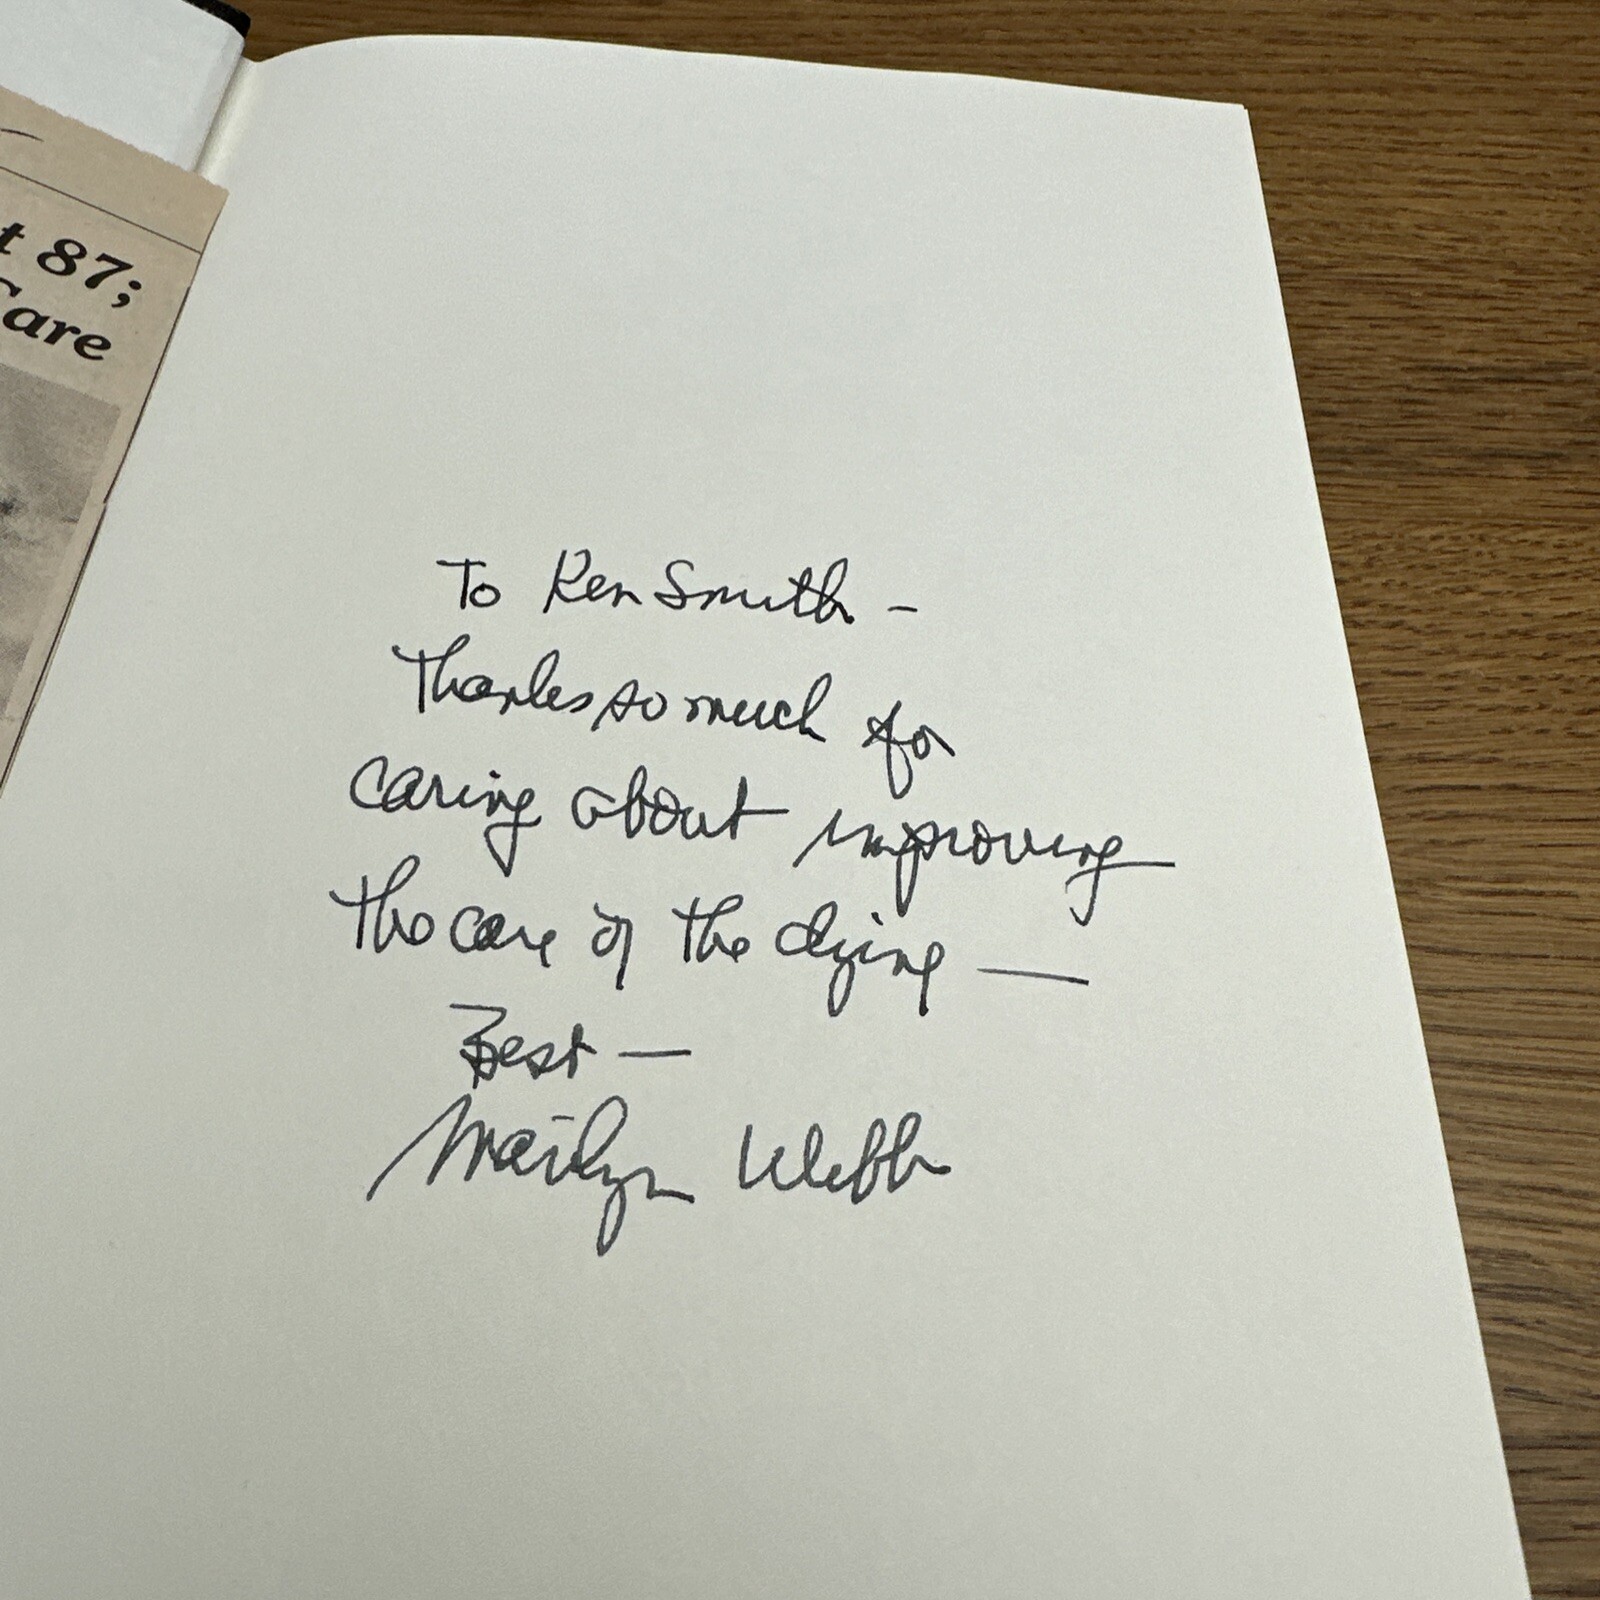 t 87;
Care
To Ken Smith –
Thanks so much for
caring about improving
the care of the dying —
Best —
Marilyn Webb